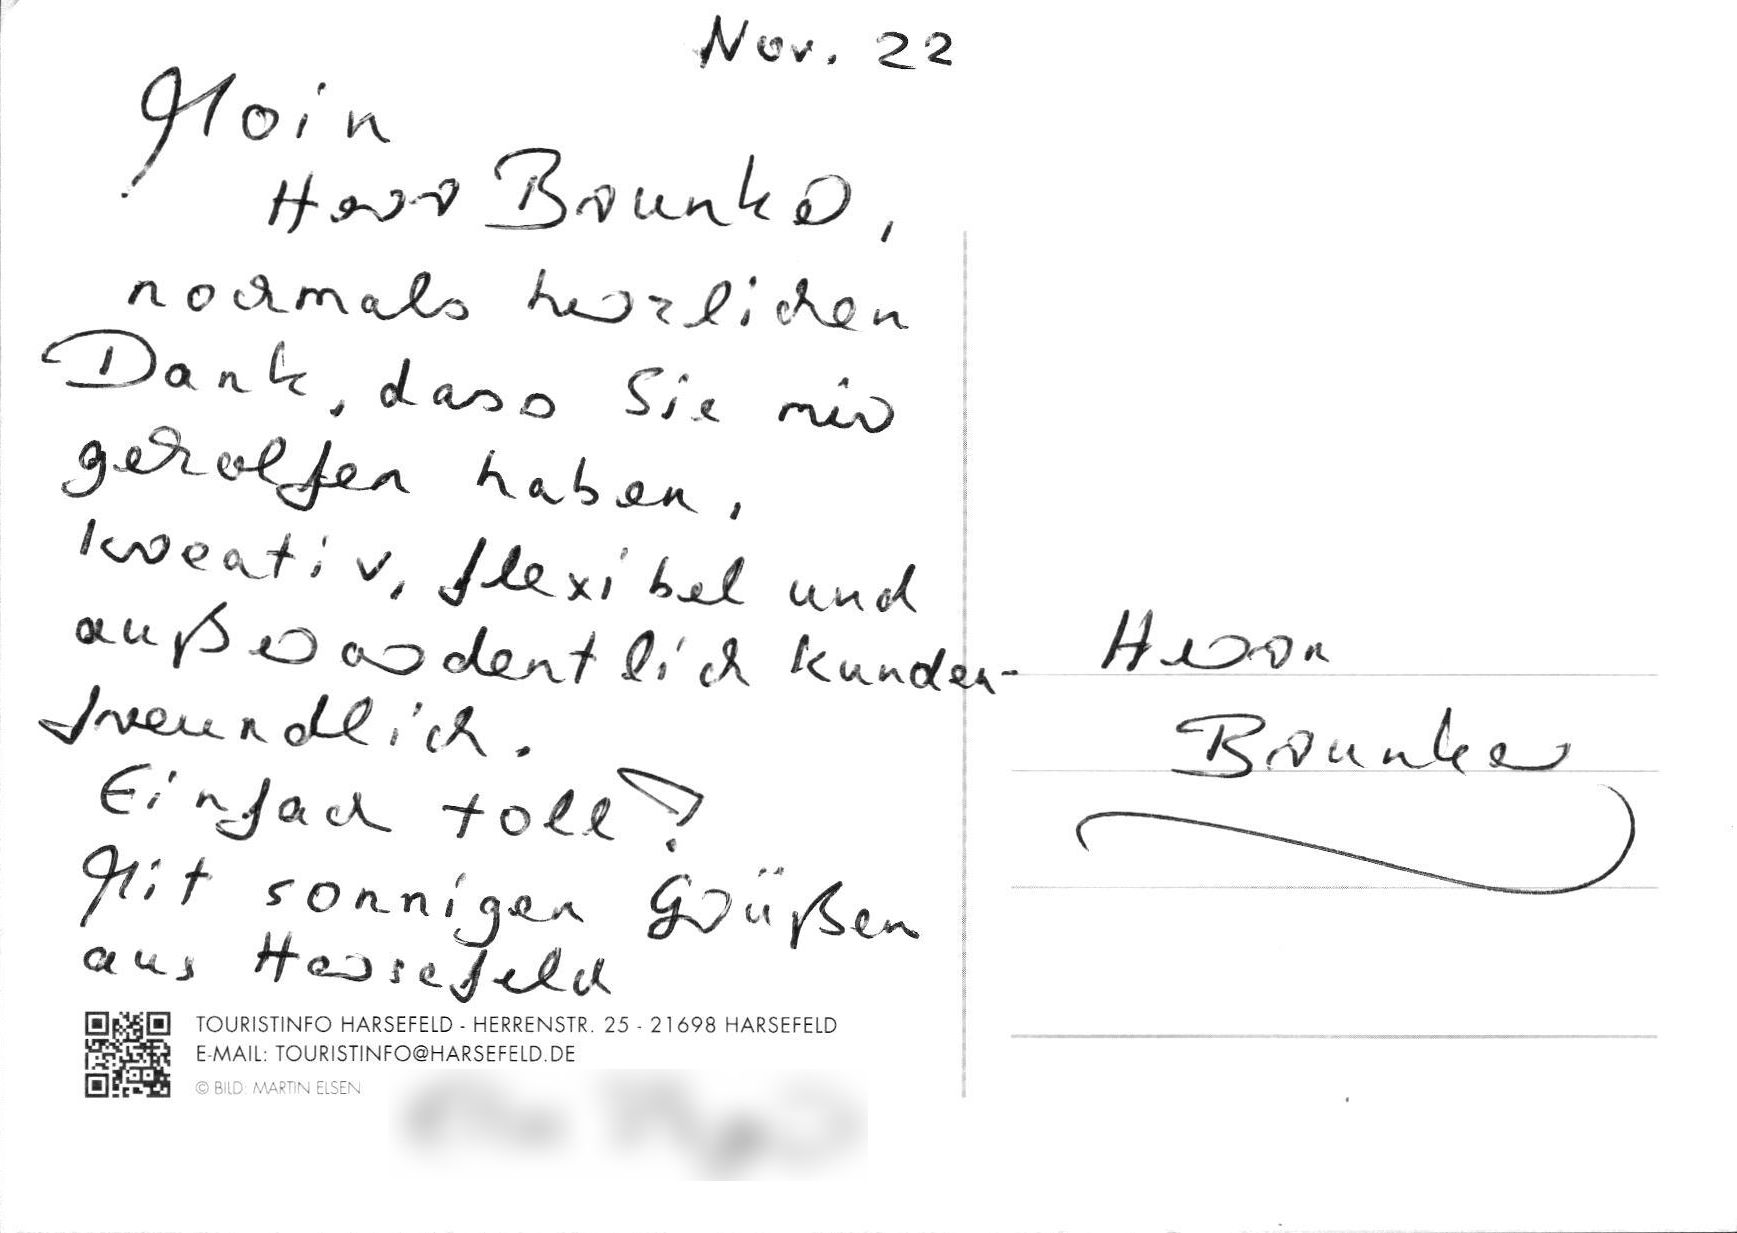 Nov. 22
Moin
Herr Brunker,
nochmals herzlichen
Dank, dass Sie mir
geholfen haben,
kreativ, flexibel und
außerordentlich kunden-
freundlich.
Einfach toll!
Mit sonnigen Grüßen
aus Harsefeld
TOURISTINFO HARSEFELD - HERRENSTR. 25 - 21698 HARSEFELD
E-MAIL: TOURISTINFO@HARSEFELD.DE
© BILD: MARTIN ELSEN
Herrn
Brunker